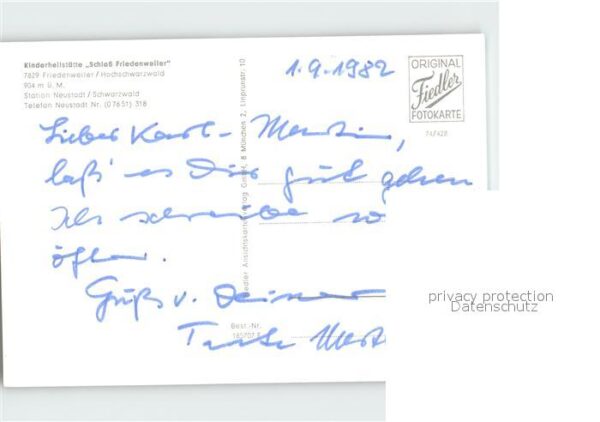 Kinderheilstätte „Schloß Friedenweiler"
7829 Friedenweiler / Hochschwarzwald
904 m ü. M.
Station Neustadt / Schwarzwald
Telefon Neustadt Nr. (07651) 318
1.9.1982
ORIGINAL
Fiedler
FOTOKARTE
74/428
Lieber Karl-Martin,
laß' es Dir gut gehen
Ich schreibe so
öfter.
Gruß v. Deiner
Tante
Fiedler Ansichtskartenverlag GmbH, 8 München 2, Linprunstr. 10
Best.-Nr.
privacy protection
Datenschutz